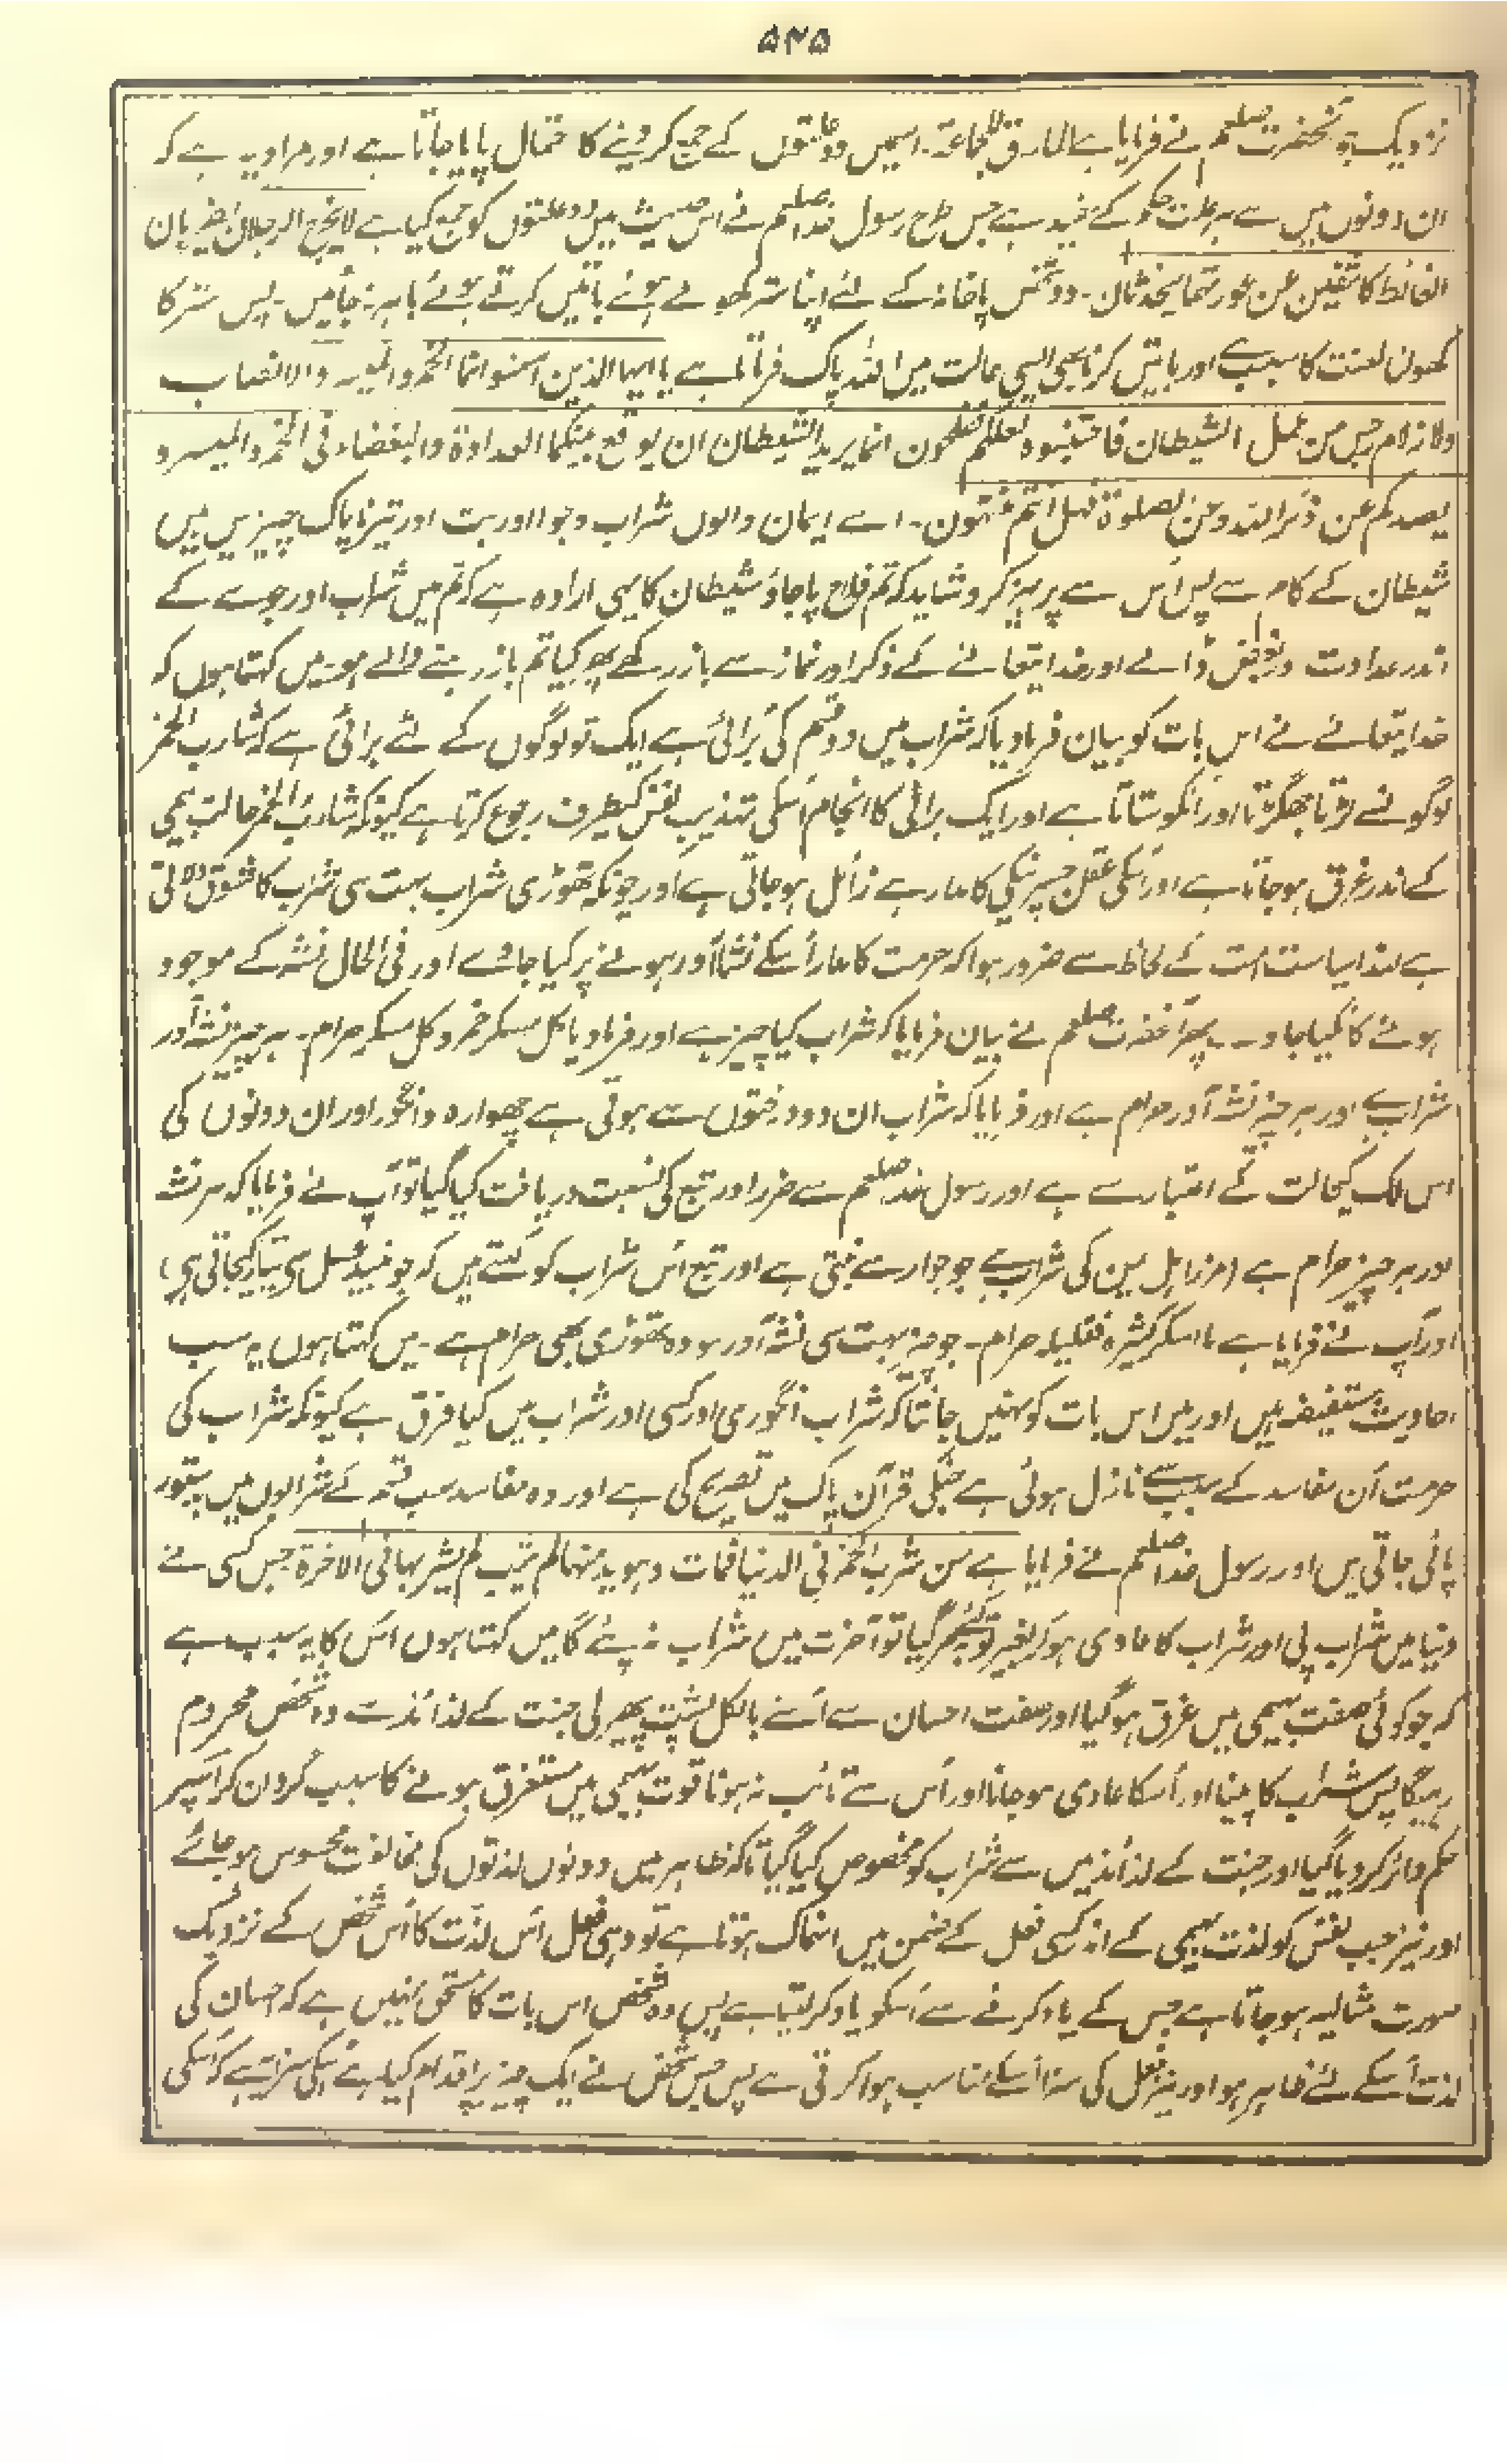 ۵۴۵
نزدیک ہو آنحضرت صلعم نے فرمایا ہے المفارق للجماعۃ۔ اسمیں دو علتوں کے جمع کر دینے کا احتمال پایا جاتا ہے اور مراد یہ ہے کہ
ان دونوں میں سے ہر علت حکم کے مفید ہے جس طرح رسول خدا صلعم نے اس حدیث میں دو علتوں کو جمع کیا ہے لا یخرج الرجلان یضربان
الغائط کاشفین عن عورتہما یتحدثان۔ دو شخص پاخانہ کے لئے اپنا ستر کھولے ہوئے باتیں کرتے ہوئے باہر نہ جائیں۔ پس ستر کا
کھولنا لعنت کا سبب ہے اور باتیں کرنا بھی ایسی حالت میں اللہ پاک فرماتا ہے یا ایہا الذین امنوا انما الخمر والمیسر والانصاب
والازلام رجس من عمل الشیطان فاجتنبوہ لعلکم تفلحون انما یرید الشیطان ان یوقع بینکم العداوۃ والبغضاء فی الخمر والمیسر و
یصدکم عن ذکر اللہ وعن الصلوۃ فہل انتم منتہون۔ اے ایمان والوں شراب و جوا اور بت اور تیر ناپاک چیزیں ہیں
شیطان کے کام سے پس اُس سے پرہیز کرو شاید کہ تم فلاح پا جاؤ شیطان کا یہی ارادہ ہے کہ تم میں شراب اور جوے کے
اندر عداوت و بغض ڈالے اور خدایتعالے کے ذکر اور نماز سے باز رکھے پھر کیا تم باز رہنے والے ہو۔ میں کہتا ہوں کہ
خدایتعالے نے اس بات کو بیان فرما دیا کہ شراب میں دو قسم کی بُرائی ہے ایک تو لوگوں کے لئے برائی ہے کہ شارب الخمر
لوگوں سے لڑتا جھگڑتا اور انکو ستاتا ہے اور ایک برائی کا انجام اُسکی تہذیب نفس کیطرف رجوع کرتا ہے کیونکہ شارب الخمر حالت بہیمی
کے اندر غرق ہو جاتا ہے اور اُسکی عقل جسپر نیکی کا مدار ہے زائل ہو جاتی ہے اور چونکہ تھوڑی شراب بہت سی شراب کا شوق دلاتی
ہے لہذا سیاست امت کے لحاظ سے ضرور ہوا کہ حرمت کا مدار اُسکے نشہ آور ہونے پر کیا جاوے اور فی الحال نشہ کے موجود
ہونے کا نکیا جاوے۔ پھر آنحضرت صلعم نے بیان فرمایا کہ شراب کیا چیز ہے اور فرما دیا کل مسکر خمر و کل مسکر حرام۔ ہر چیز نشہ آور
شراب ہے اور ہر چیز نشہ آور حرام ہے اور فرمایا کہ شراب ان دو درختوں سے ہوتی ہے چھوارہ و انگور اور ان دونوں کی
اس ملک کیحالت کے اعتبار سے ہے اور رسول خدا صلعم سے مزر اور تبع کی نسبت دریافت کیا گیا تو آپ نے فرمایا کہ ہر نشہ
اور ہر چیز حرام ہے (مزر اہل یمن کی شراب ہے جو جوار سے بنتی ہے اور تبع اُس شراب کو کہتے ہیں کہ جو نبیذ عسل سی تیار کیجاتی ہی)
اور آپ نے فرمایا ہے ما اسکر کثیرہ فقلیلہ حرام۔ جو چیز بہت سی نشہ آور ہو وہ تھوڑی بھی حرام ہے۔ میں کہتا ہوں یہ سب
احادیث مستفیضہ ہیں اور میں اس بات کو نہیں جانتا کہ شراب انگوری اور کسی اور شراب میں کیا فرق ہے کیونکہ شراب کی
حرمت اُن مفاسد کے سبب سے نازل ہوئی ہے جنکی قرآن پاک میں تصریح کی ہے اور وہ مفاسد سب قسم کے شرابوں میں بدستور
پائی جاتی ہیں اور رسول خدا صلعم نے فرمایا ہے من شرب الخمر فی الدنیا فمات وہو یدمنہا لم یتب لم یشربہا فی الاخرۃ جس کسی نے
دنیا میں شراب پی اور شراب کا عادی ہو کر بغیر توبہ کئے مر گیا تو آخرت میں شراب نہ پئے گا میں کہتا ہوں اُس کا یہ سبب ہے
کہ جو کوئی صفت بہیمی میں غرق ہو گیا اور صفت احسان سے اُسنے بالکل پشت پھیر لی جنت کے لذائذ سے وہ شخص محروم
رہیگا پس شراب کا پینا اور اُسکا عادی ہو جانا اور اُس سے تائب نہ ہونا قوت بہیمی میں مستغرق ہونے کا سبب گردان کر اُسپر
حکم دائر کر دیا گیا اور جنت کے لذائذ میں سے شراب کو مخصوص کیا گیا تاکہ ظاہر میں دونوں لذتوں کی مخالفت محسوس ہو جائے
اور نیز جب نفس کو لذت بہیمی کے اندر کسی فعل کے ضمن میں انہماک ہوتا ہے تو وہی فعل اُس لذت کا اُس شخص کے نزدیک
صورت مثالیہ ہو جاتا ہے جس کے یاد کرنے سے اُسکو یاد کر لیتا ہے پس وہ شخص اس بات کا مستحق نہیں ہے کہ احسان کی
لذت اُسکے لئے ظاہر ہو اور نیز فعل کی سزا اُسکے مناسب ہوا کرتی ہے پس جس شخص نے ایک چیز پر اقدام کیا ہے اُسکی سزا یہ ہے کہ اُسکی